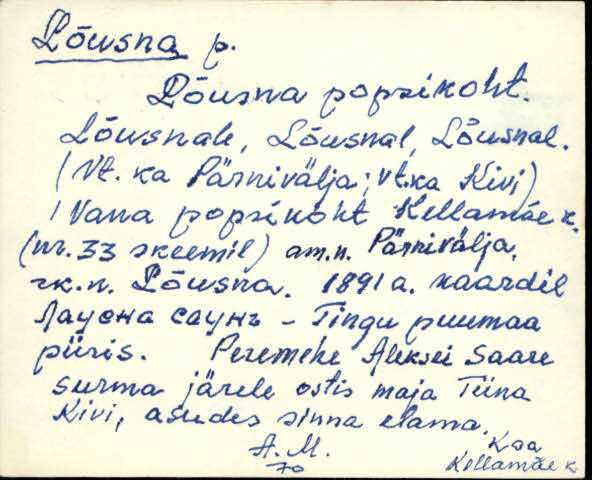 Lõusna p.
Lõusna popsikoht.
Lõusnale, Lõusnal, Lõusnal.
(Vt. ka Pärnivälja; vt. ka Kivi)
Vana popsikoht Kellamäe k.
(nr. 33 skeemil) am.n. Pärnivälja,
rk.n. Lõusna. 1891 a. kaardil
Лаусна саунъ – Tingu puumaa
piiris. Peremehe Aleksei Saare
surma järele ostis maja Tiina
Kivi, asudes sinna elama.
A. M.
70
Kaa
Kellamäe k